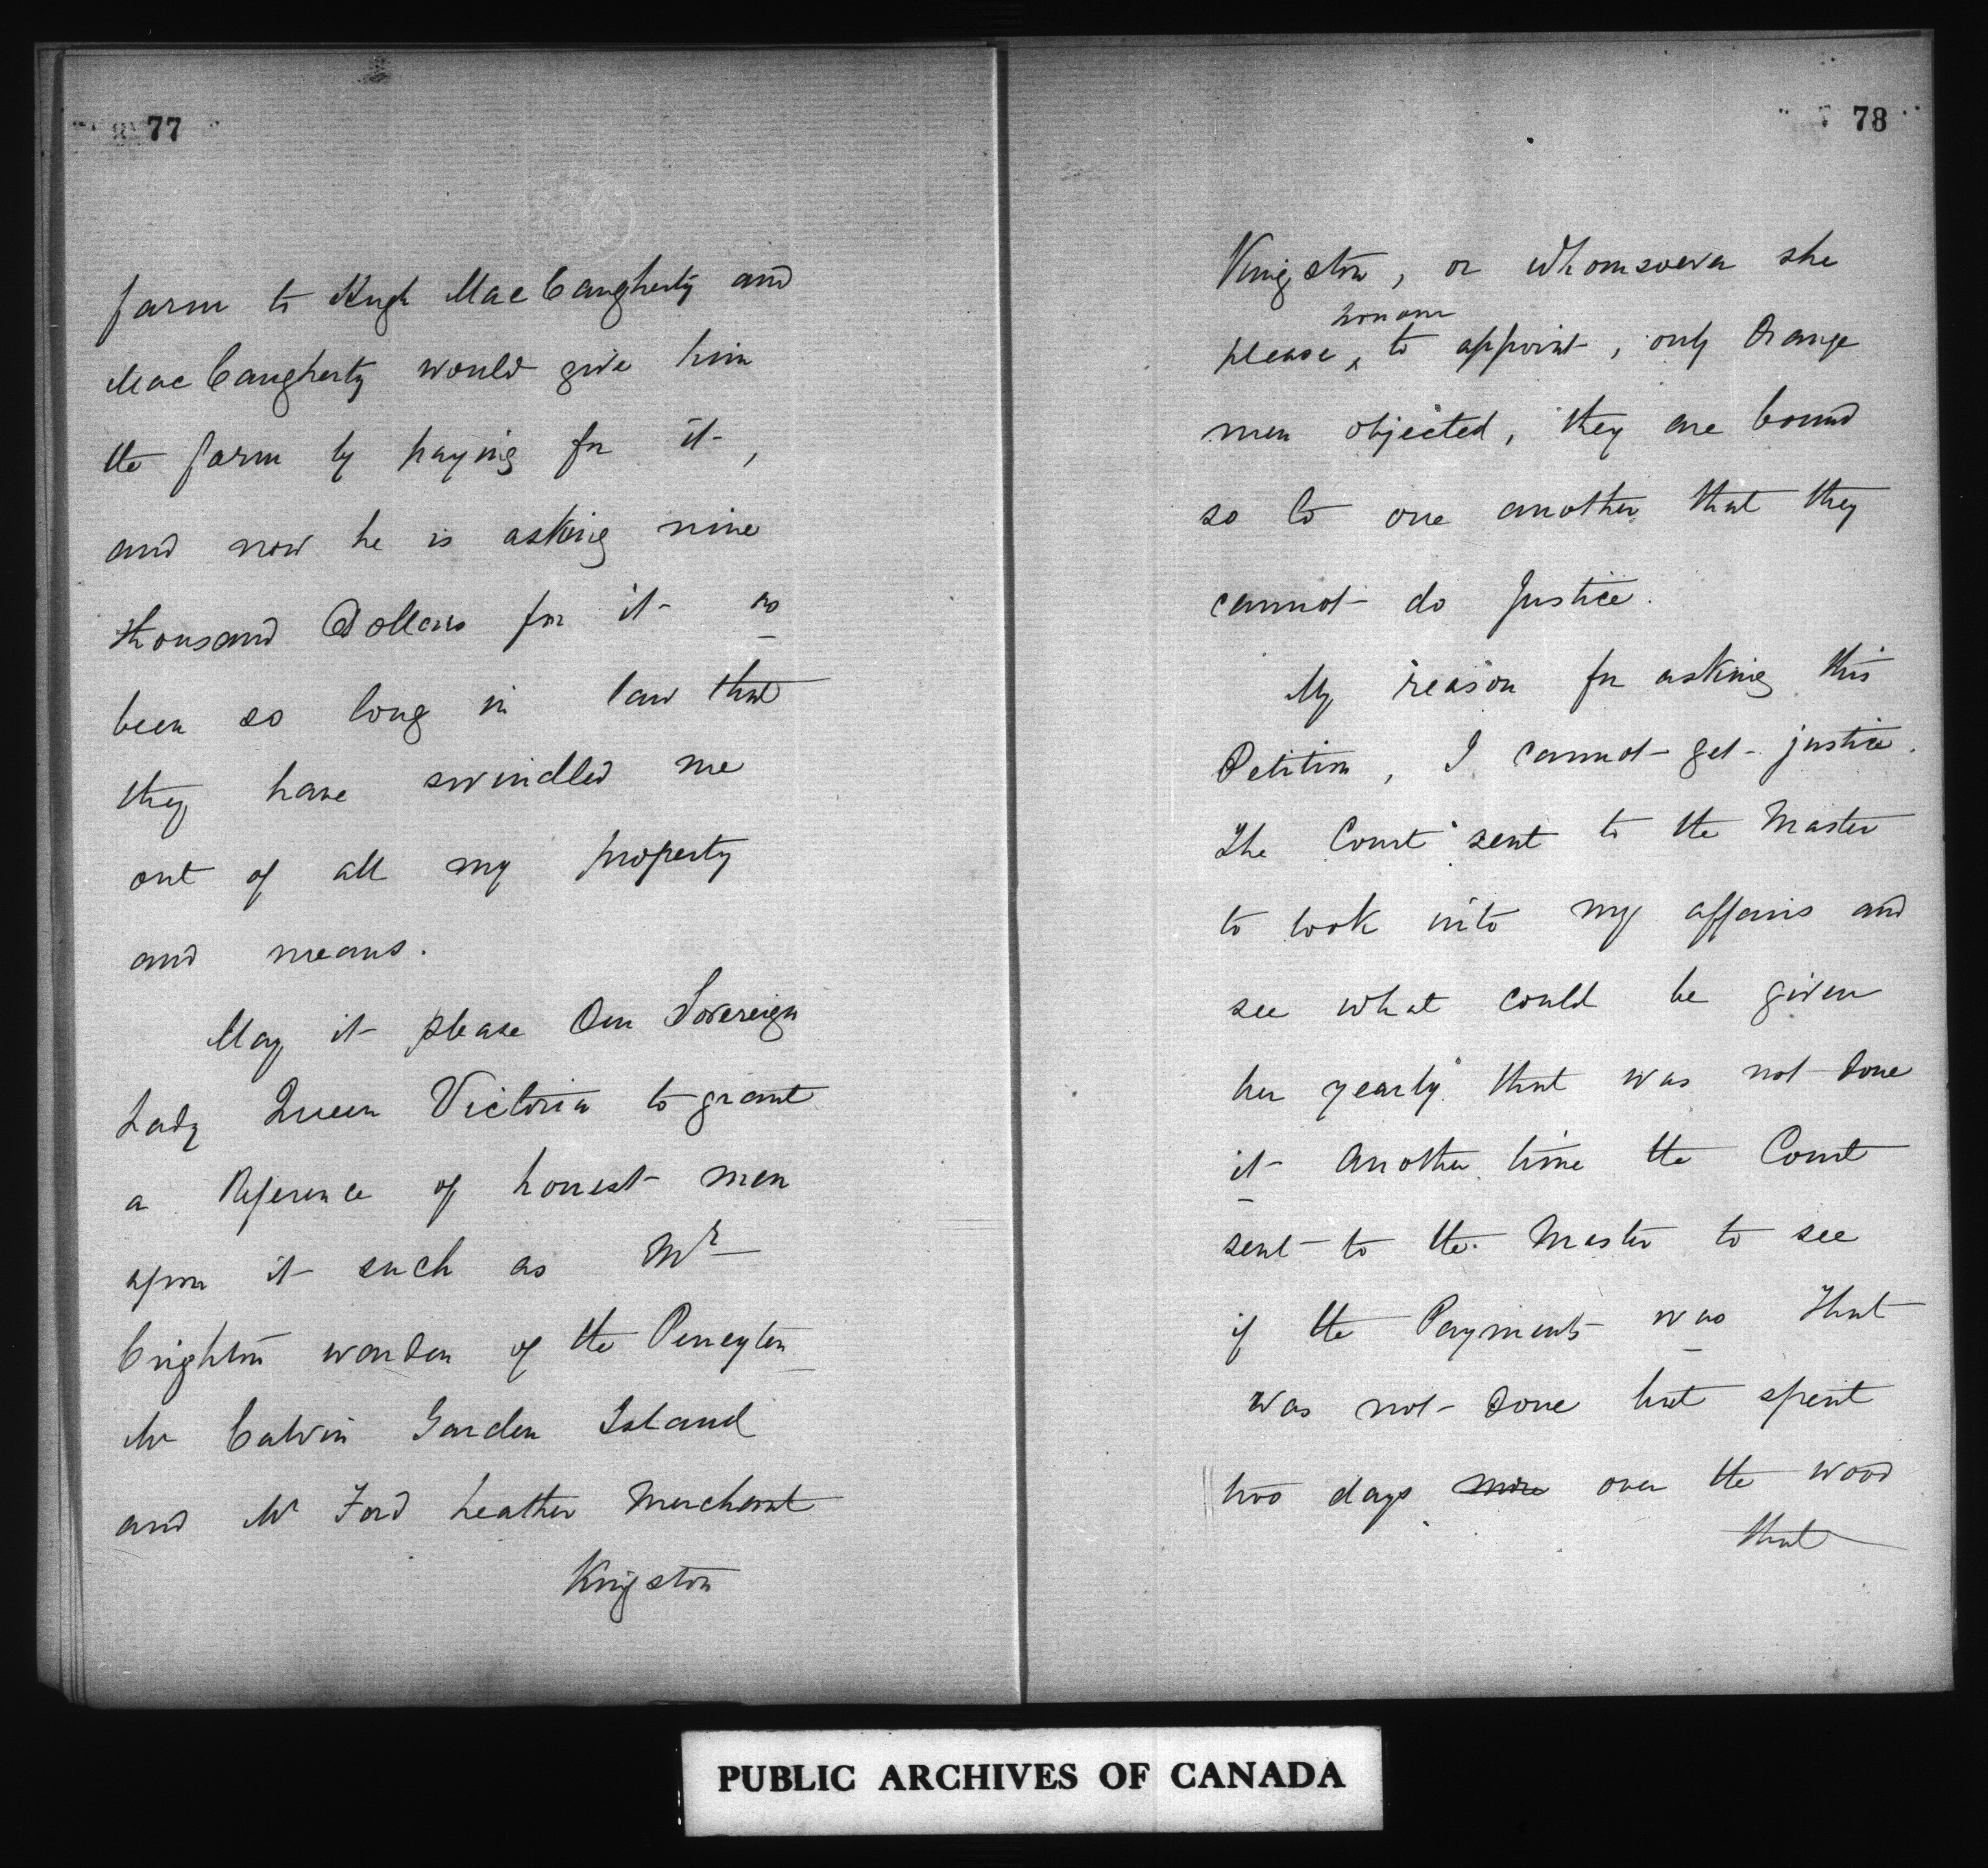 77
farm to Hugh MacCaugherty and
MacCaugherty would give him
the farm by paying for it,
and now he is asking nine
thousand Dollars for it as
been so long in law that
they have swindled me
out of all my property
and means.
May it please Our Sovereign
Lady Queen Victoria to grant
a Reference of honest men
upon it such as Mr
Crighton warden of the Peneyten
Mr Calvin Garden Island
and Mr Ford Leather Merchant
Kingston
78
Kingston, or whomsoever she
honour
please ^ to appoint, only Orange
men objected, they are bound
so to one another that they
cannot do Justice.
My reason for asking this
Petition, I cannot get justice.
The Court sent to the Master
to look into my affairs and
see what could be given
her yearly that was not done
it Another time the Court
sent to the Master to see
if the Payments was that
was not done but spent
two days more over the wood
that
PUBLIC ARCHIVES OF CANADA